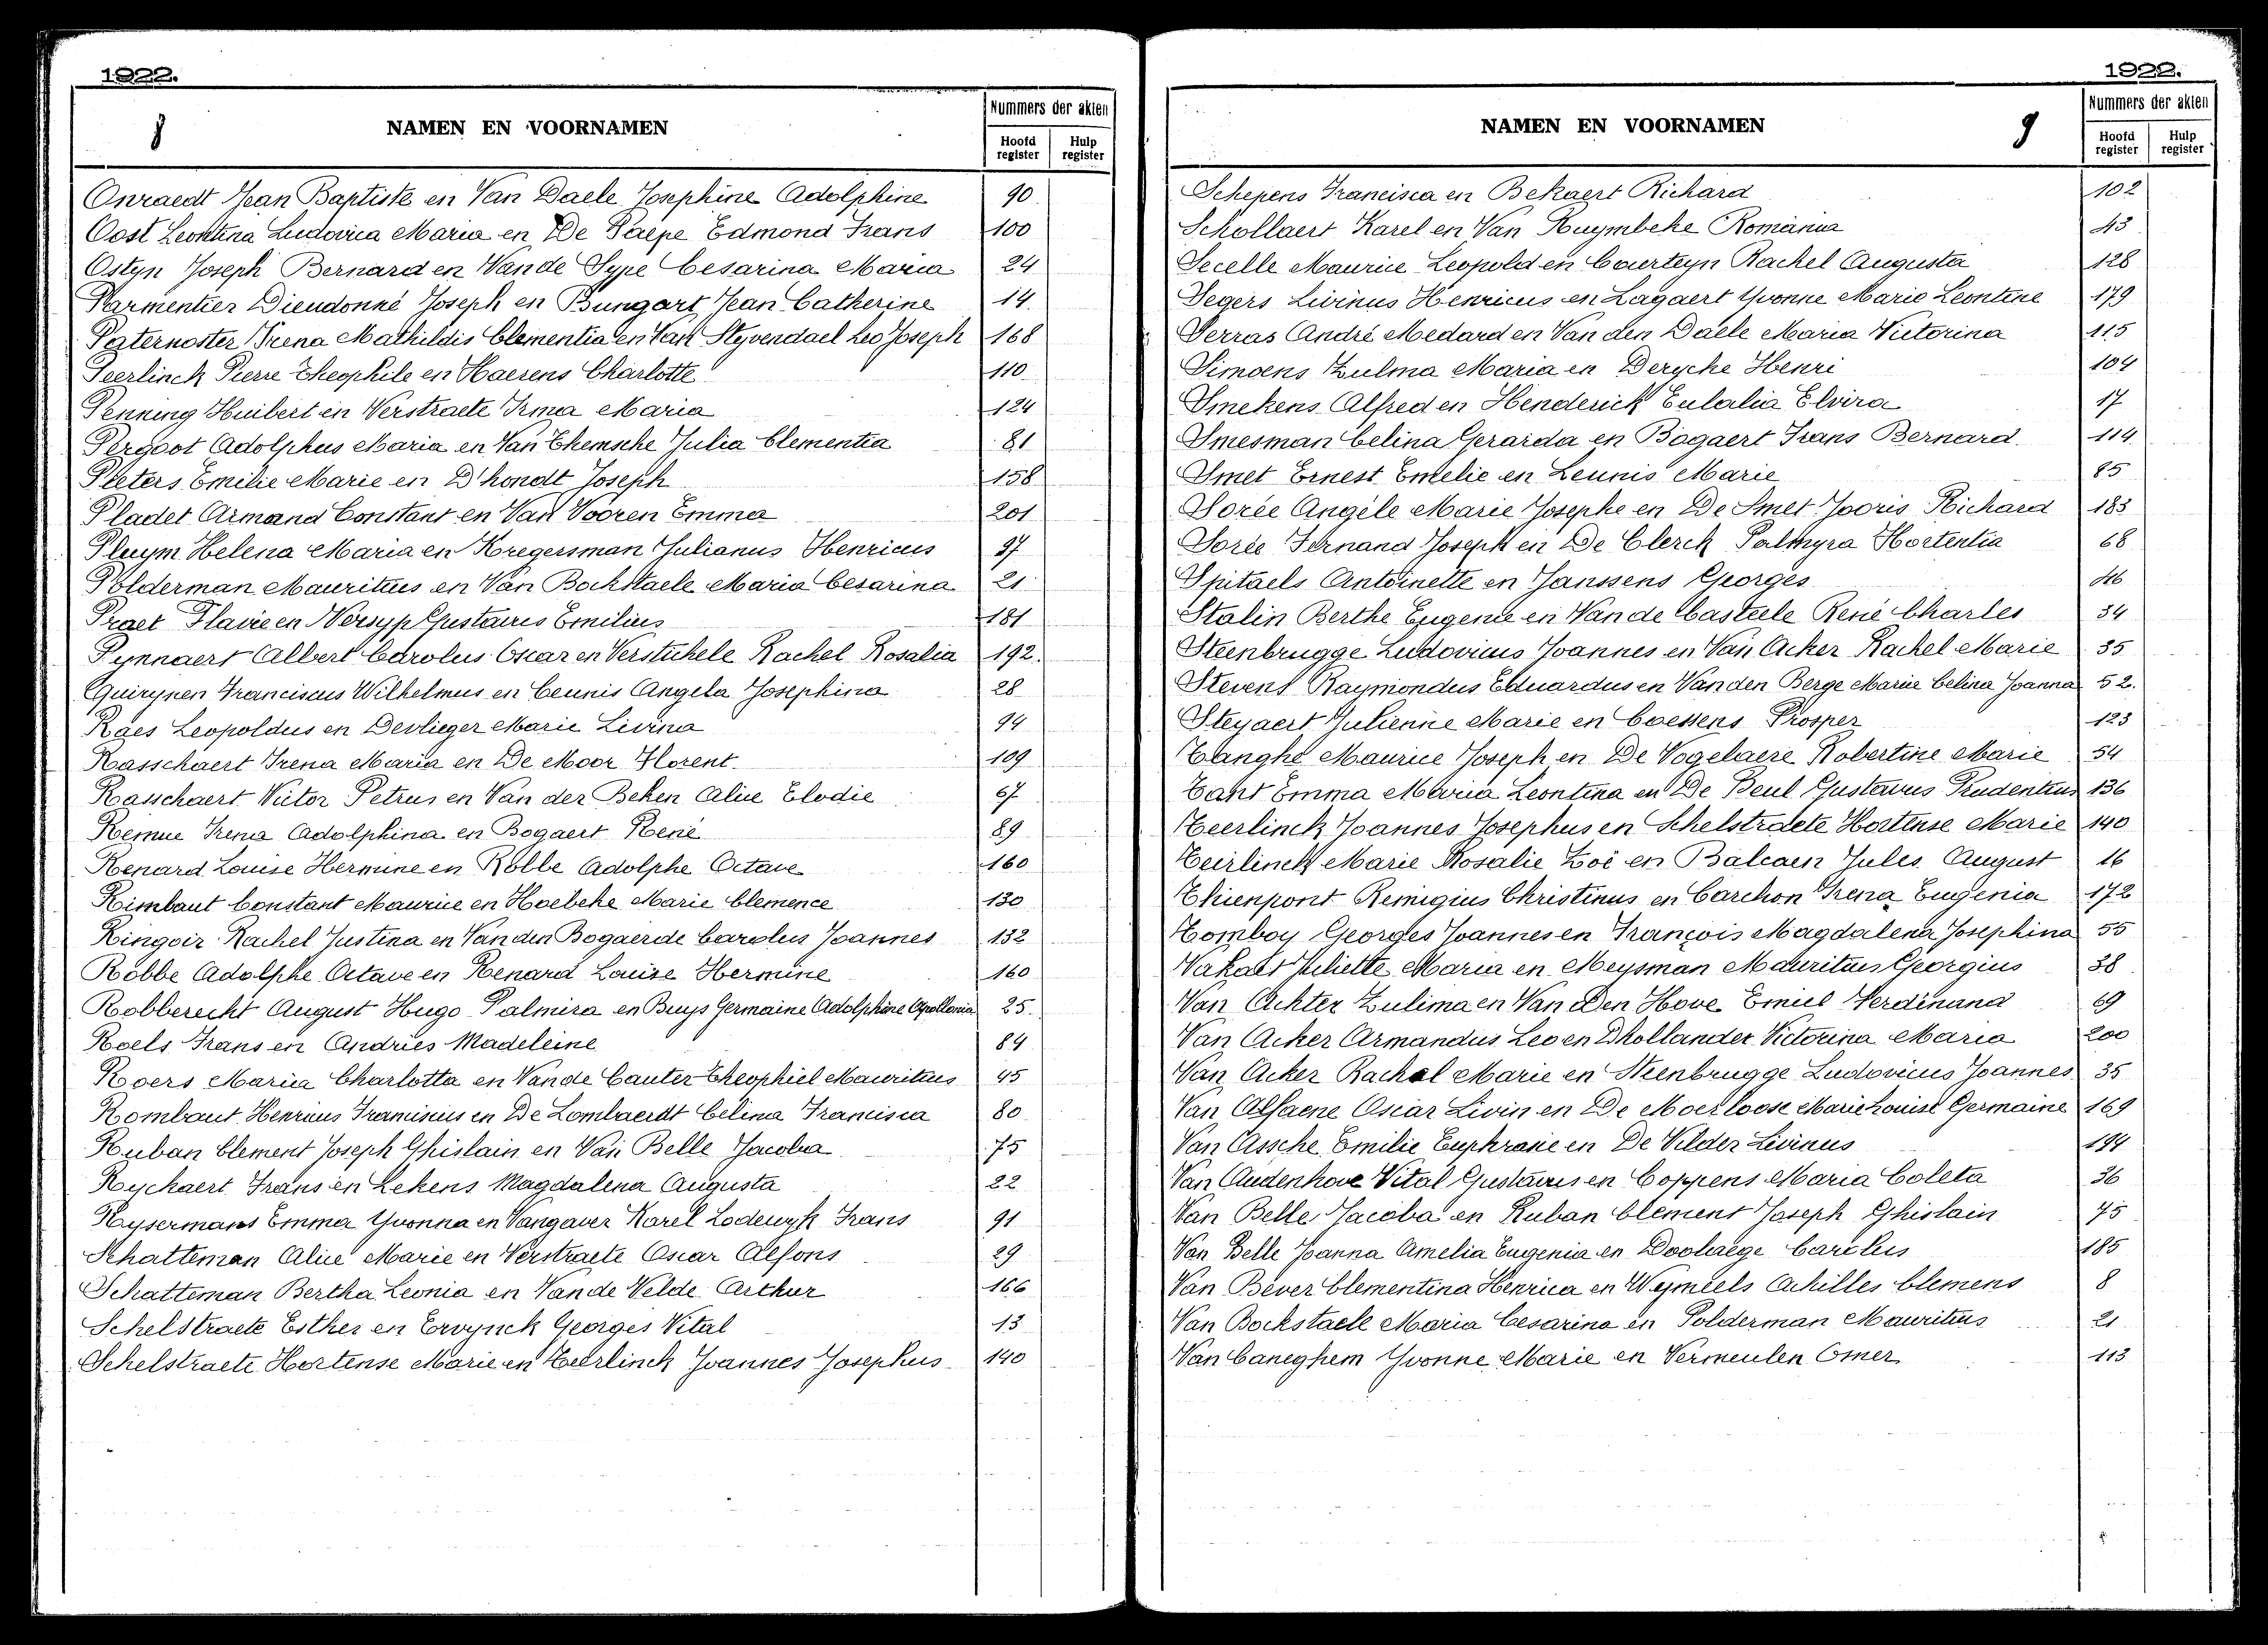 1922.
8
NAMEN EN VOORNAMEN
Nummers der akten
Hoofd register
Hulp register
Onraedt Jean Baptiste en Van Daele Josephine Adolphine 90
Oost Leontina Ludovica Maria en De Paepe Edmond Frans 100
Ostyn Joseph Bernard en Van de Sype Cesarina Maria 24
Parmentier Dieudonné Joseph en Bungart Jean Catherine 14
Paternoster Irena Mathildis Clementia en Van Steyvendael Leo Joseph 168
Peerlinck Pierre Theophile en Haerens Charlotte 110
Penning Huibert en Verstraete Irma Maria 124
Pergoot Adolphus Maria en Van Themsche Julia Clementia 81
Pieters Emilie Marie en D'hondt Joseph 158
Pladet Armand Constant en Van Vooren Emma 201
Pluym Helena Maria en Kregersman Julianus Henricus 97
Polderman Mauritius en Van Bockstaele Maria Cesarina 21
Praet Flavie en Versyp Gustavus Emilius 181
Pynnaert Albert Carolus Oscar en Verstichele Rachel Rosalia 192.
Quirynen Franciscus Wilhelmus en Ceunis Angela Josephina 28
Raes Leopoldus en Devlieger Marie Livina 94
Rasschaert Irena Maria en De Moor Florent. 109
Rasschaert Victor Petrus en Van der Beken Alice Elodie 67
Remue Irena Adolphina en Bogaert René 89
Renard Louise Hermine en Robbe Adolphe Octave 160
Rimbaut Constant Maurice en Hoebeke Marie Clemence 130
Ringoir Rachel Justina en Van den Bogaerde Carolus Joannes 132
Robbe Adolphe Octave en Renard Louise Hermine 160
Robberecht August Hugo Palmira en Buys Germaine Adolphine Apollonia 25.
Roels Frans en Andries Madeleine 84
Roers Maria Charlotta en Van de Cauter Theophiel Mauritius 45
Rombaut Henricus Franciscus en De Lombaerdt Celina Francisca 80
Ruban Clement Joseph Ghislain en Van Belle Jacoba 75
Ryckaert Frans en Lekens Magdalena Augusta 22
Rysermans Emma Yvonna en Vangaver Karel Lodewyk Frans 91
Schatteman Alice Marie en Verstraete Oscar Alfons 29
Schatteman Bertha Leonia en Van de Velde Arthur 166
Schelstraete Esther en Ervynck Georges Vital 13
Schelstraete Hortense Marie en Teerlinck Joannes Josephus 140
1922.
NAMEN EN VOORNAMEN
9
Nummers der akten
Hoofd register
Hulp register
Schepens Francisca en Bekaert Richard 102
Schollaert Karel en Van Ruymbeke Romania 43
Secelle Maurice Leopold en Couerteyn Rachel Augusta 128
Segers Livinus Henricus en Lagaert Yvonne Marie Leontine 179
Serras André Medard en Van den Daele Maria Victorina 115
Simoens Zulma Maria en Derycke Henri 104
Smekens Alfred en Henderick Eulalia Elvira 17
Smesman Celina Geraida en Bogaert Frans Bernard. 114
Smet Ernest Emelie en Leunis Marie 85
Sorée Angèle Marie Josephe en De Smet Jooris Richard 183
Sorée Fernand Joseph en De Clerck Palmyra Hortentia 68
Spitaels Antoinette en Janssens Georges 46
Stalin Berthe Eugenie en Van de Casteele René Charles 34
Steenbrugge Ludovicus Joannes en Van Acker Rachel Marie 35
Stevens Raymondus Eduardus en Van den Berge Marie Celina Joanna 52.
Steyaert Julienne Marie en Coessens Prosper 123
Tanghe Maurice Joseph en De Vogelaere Robertine Marie 54
Tant Emma Maria Leontina en De Beul Gustavus Prudentius 136
Teerlinck Joannes Josephus en Schelstraete Hortense Marie 140
Teirlinck Marie Rosalie Zoé en Balcaen Jules August 16
Thienpont Remigius Christinus en Carchon Irena Eugenia 172
Tomboy Georges Joannes en François Magdalena Josephina 55
Vakaet Juliette Maria en Meysman Mauritius Georgius 38
Van Achter Zulima en Van Den Hove Emiel Ferdinand 69
Van Acker Armandus Leo en D'hollander Victorina Maria 200
Van Acker Rachel Marie en Steenbrugge Ludovicus Joannes 35
Van Alfaene Oscar Livin en De Moerloose Marie Louise Germaine 169
Van Assche Emilie Euphrasie en De Vilder Livinus 194
Van Audenhove Vital Gustavus en Coppens Maria Coleta 36
Van Belle Jacoba en Ruban Clement Joseph Ghislain 75
Van Belle Joanna Amelia Eugenia en Doolaege Carolus 185
Van Bever Clementina Henrica en Weymiels Achilles Clemens 8
Van Bockstaele Maria Cesarina en Polderman Mauritius 21
Van Caneghem Yvonne Marie en Vermeulen Omer 113